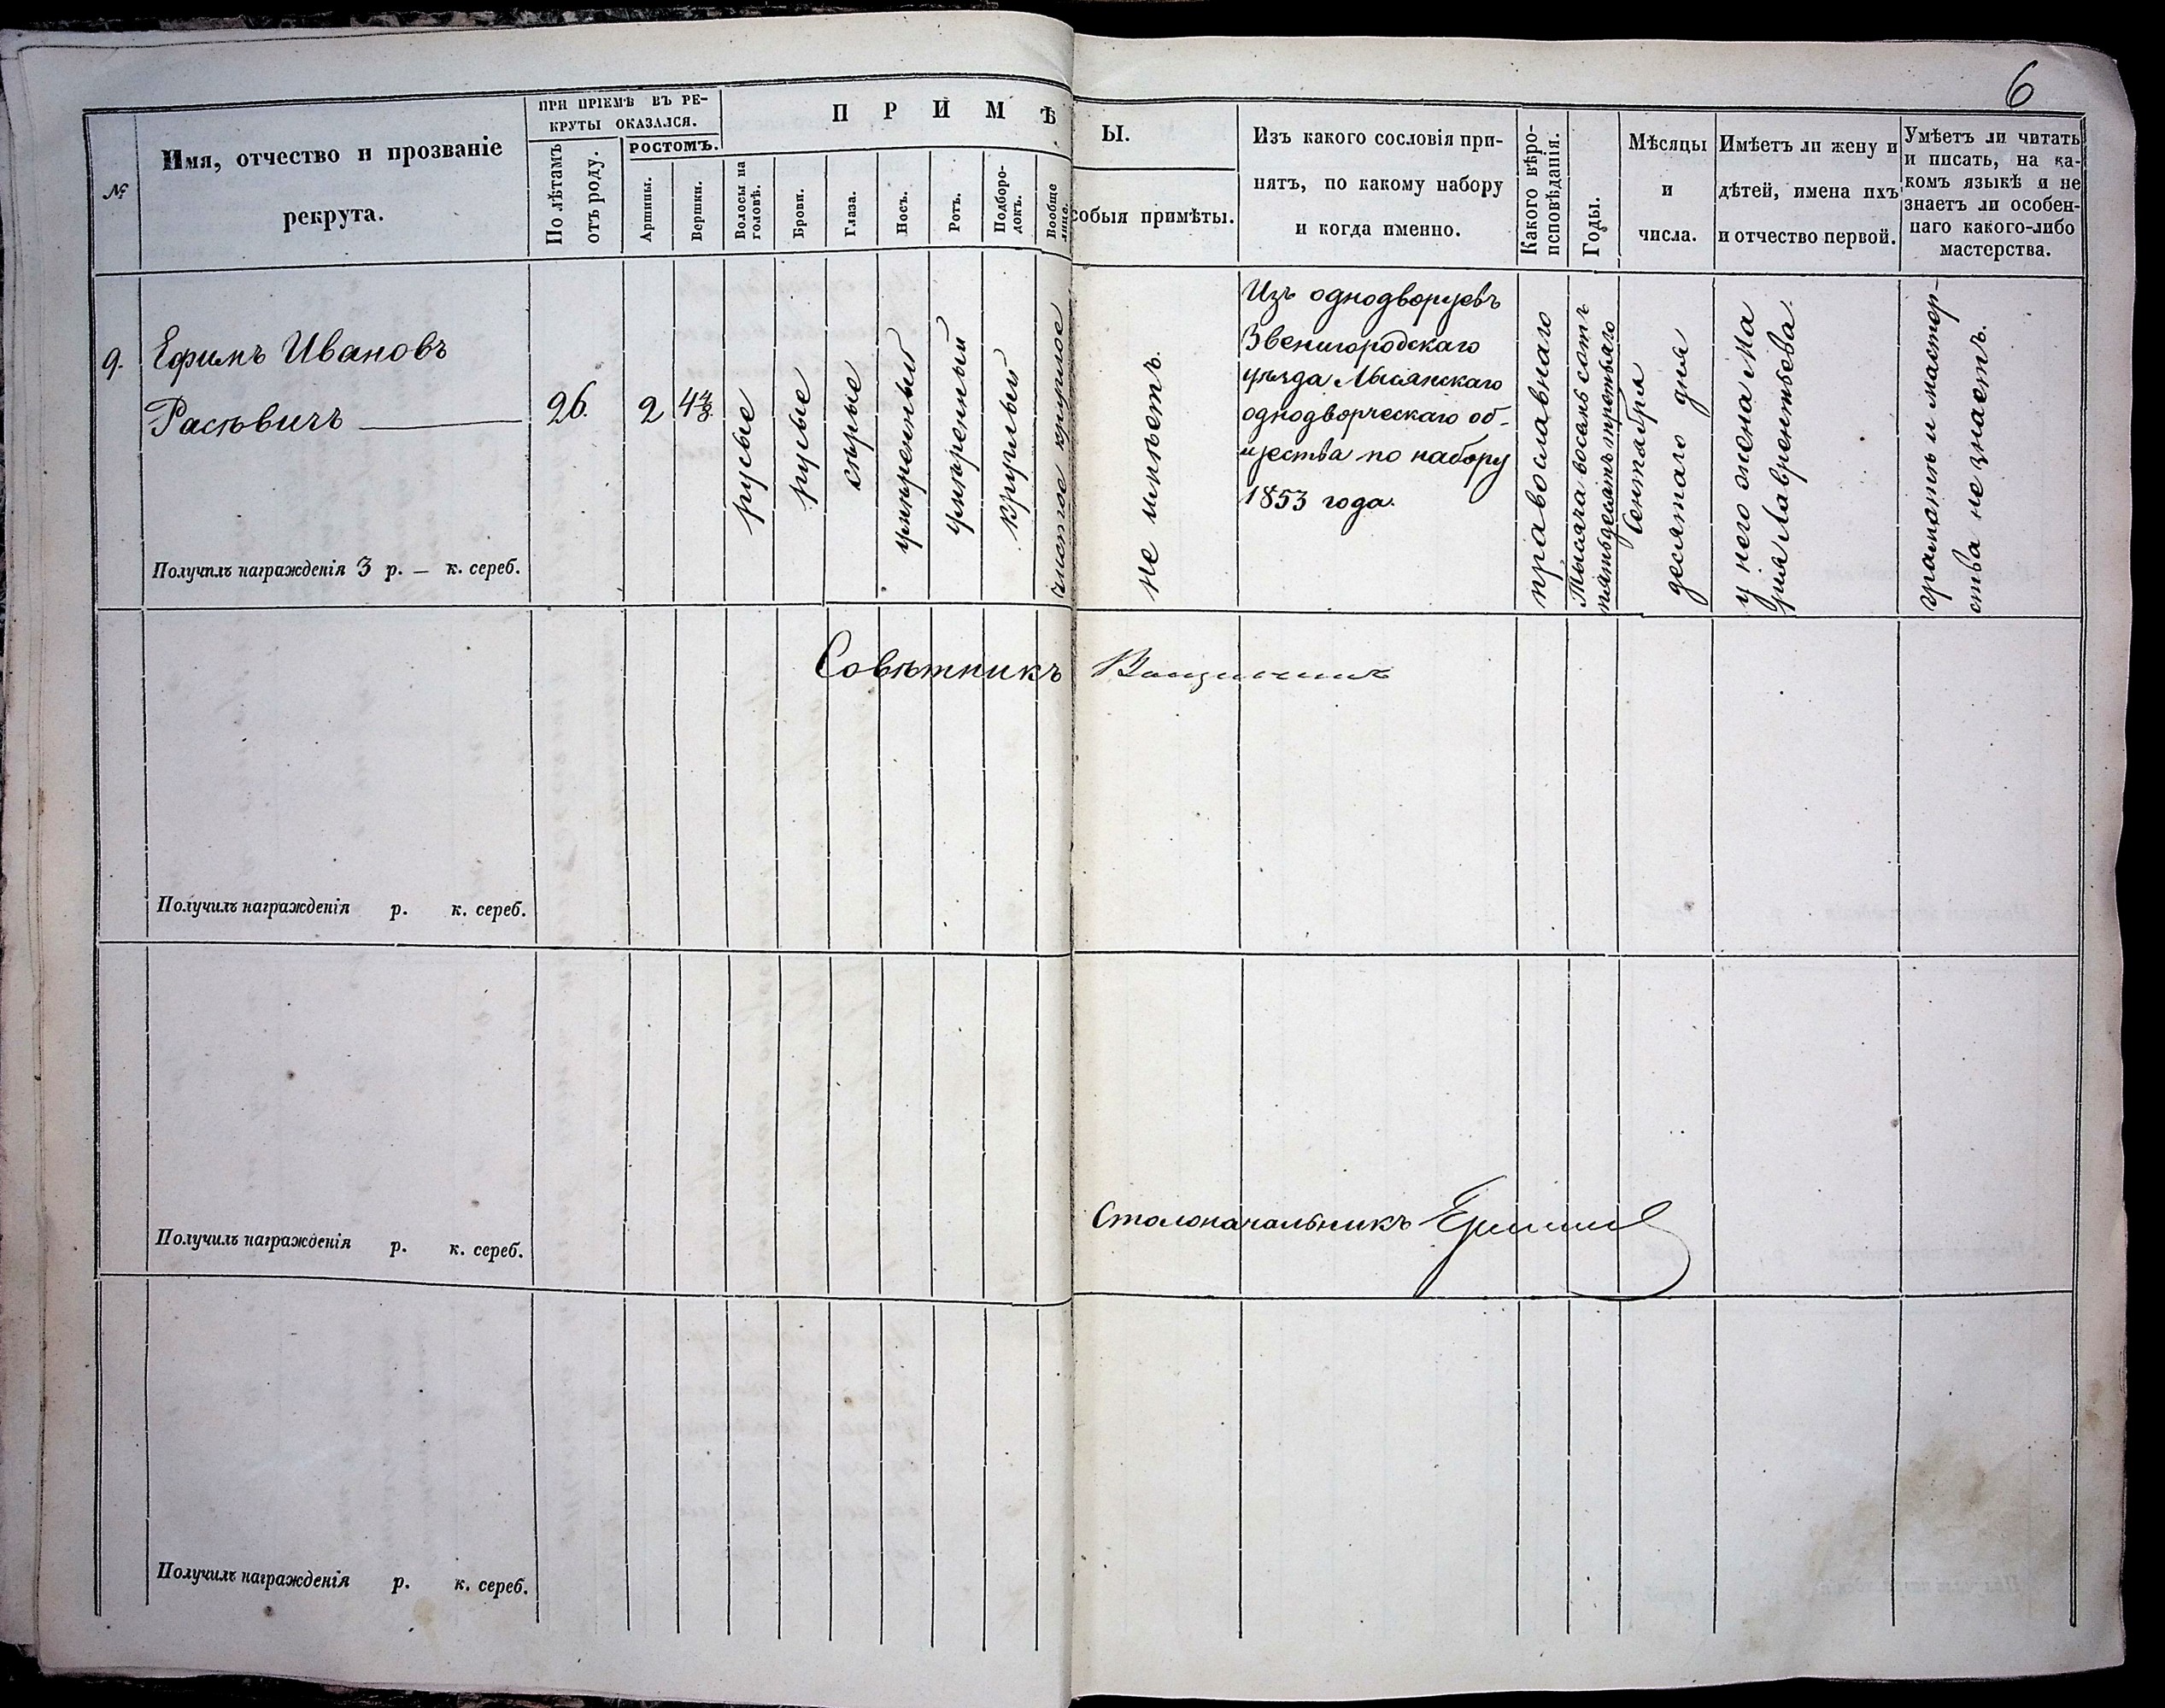 6
№
Имя, отчество и прозваніе
рекрута.
ПРИ ПРІЕМѢ ВЪ РЕ-
КРУТЫ ОКАЗАЛСЯ.
По лѣтамъ
отъ роду.
РОСТОМЪ.
Аршины.
Вершки.
ПРИМѢ
Волосы на
головѣ.
Брови.
Глаза.
Носъ.
Ротъ.
Подборо-
докъ.
Вообще
лице.
Ы.
собыя примѣты.
Изъ какого сословія при-
нятъ, по какому набору
и когда именно.
Какого вѣро-
исповѣданія.
Годы.
Мѣсяцы
и
числа.
Имѣетъ ли жену и
дѣтей, имена ихъ
и отчество первой.
Умѣетъ ли читать
и писать, на ка-
комъ языкѣ и не
знаетъ ли особен-
наго какого-либо
мастерства.
9.
Ефимъ Ивановъ
Расѣвичъ
Получилъ награжденія 3 р. — к. сереб.
26.
2
4 4/8
русые
русые
сѣрые
умѣренный
умѣренный
круглый
чистое круглое
не имѣетъ.
Изъ однодворцевъ
Звенигородскаго
уѣзда Лысянскаго
однодворческаго об-
щества по набору
1853 года.
православнаго
Тысяча восемь сотъ
пятьдесятъ третьяго
Сентября
десятаго дня
у него жена Ма
рія Лаврентьева.
грамоты и мастер-
ства не знаетъ.
Совѣтникъ
Получилъ награжденія р. к. сереб.
Столоначальникъ
Получилъ награжденія р. к. сереб.
Получилъ награжденія р. к. сереб.